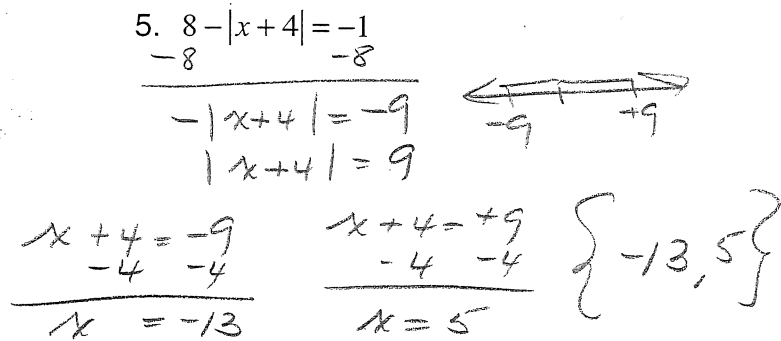 5. 8 – |x + 4| = –1
–8 –8
–|x+4| = –9
–9 +9
|x+4| = 9
x + 4 = –9
–4 –4
x = –13
x + 4 = +9
–4 –4
x = 5
{–13, 5}